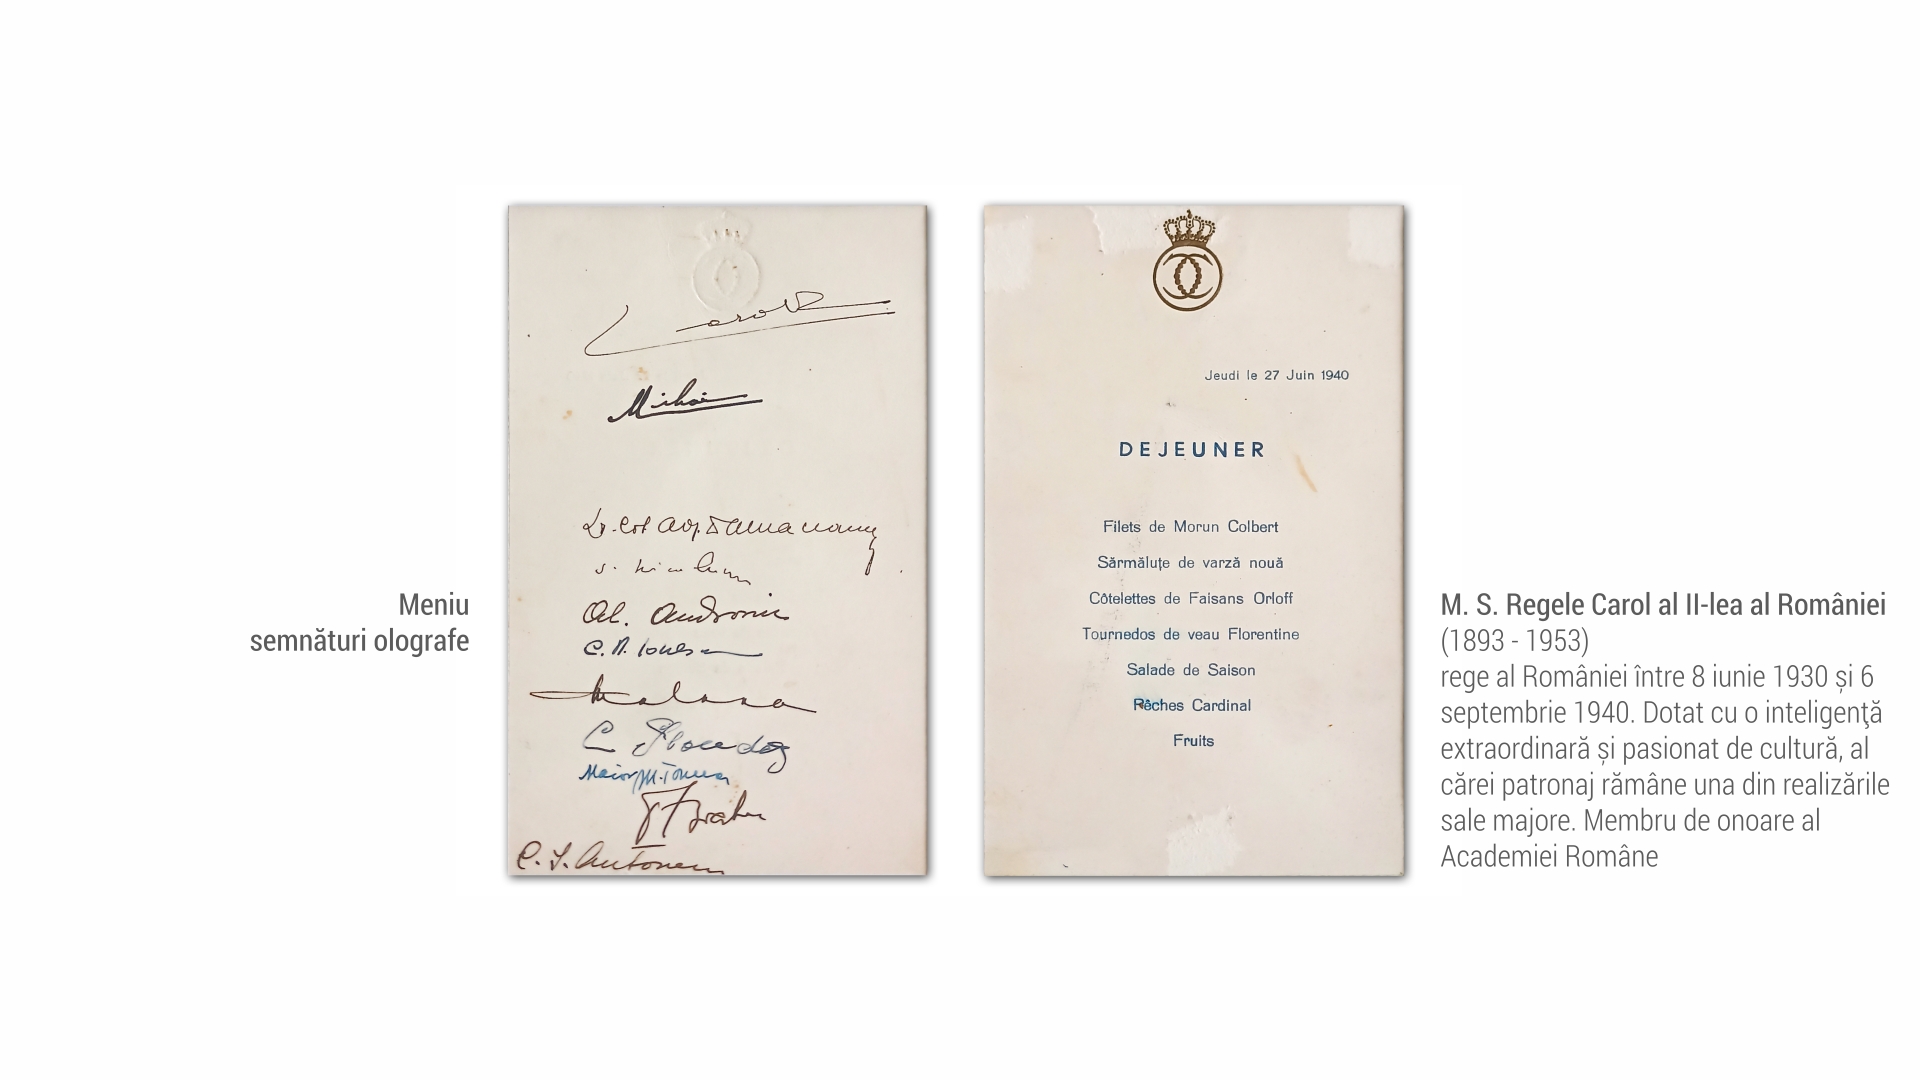 Meniu
semnături olografe
Carol
Mihai
Al. Andronic
C. N. Ionescu
C.
Maior M. Tomescu
C. I. Antonescu
Jeudi le 27 Juin 1940
DEJEUNER
Filets de Morun Colbert
Sărmăluțe de varză nouă
Côtelettes de Faisans Orloff
Tournedos de veau Florentine
Salade de Saison
Pêches Cardinal
Fruits
M. S. Regele Carol al II-lea al României
(1893 - 1953)
rege al României între 8 iunie 1930 și 6
septembrie 1940. Dotat cu o inteligenţă
extraordinară și pasionat de cultură, al
cărei patronaj rămâne una din realizările
sale majore. Membru de onoare al
Academiei Române